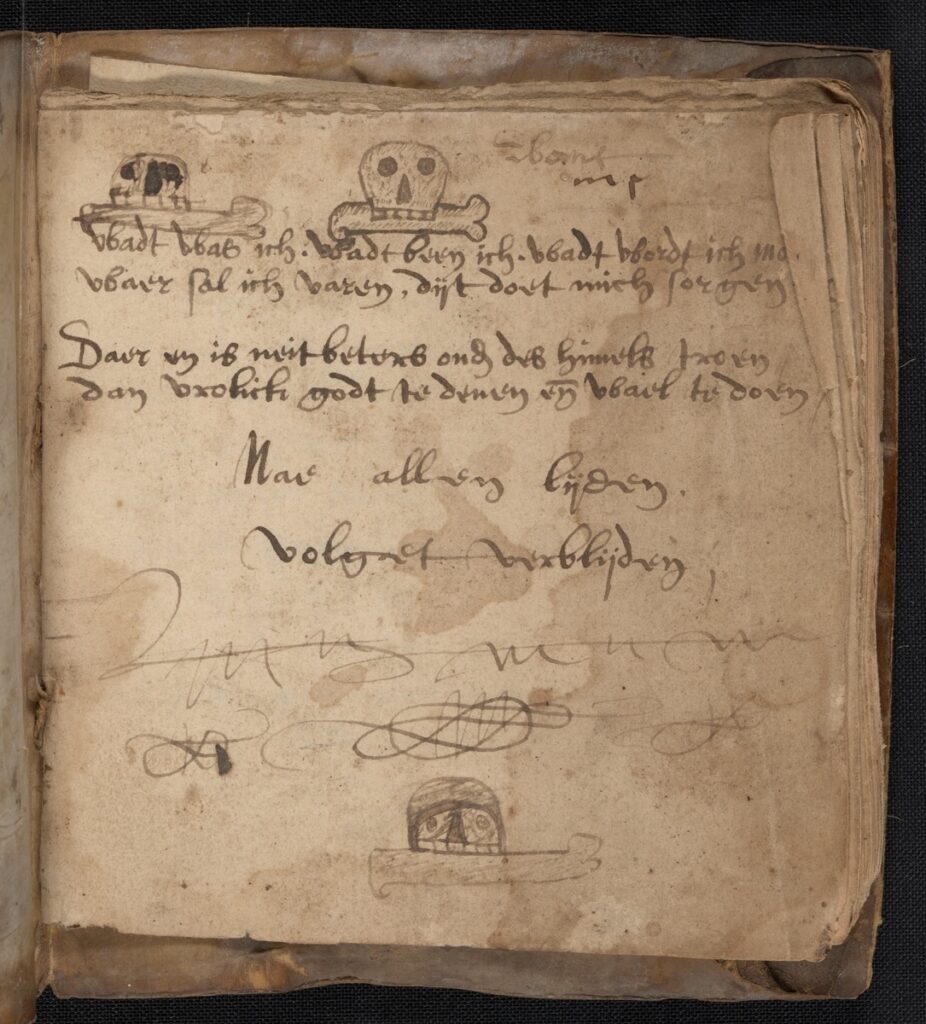 wadt was ich. wadt been ich. wadt wordt ich mo.
waer sal ich varen, dijt doet mich sorgen
Daer en is neit beters ond des himels troen
dan vrolick godt te denen en̄ wael te doen
Nae allen lijden.
volget verblijden